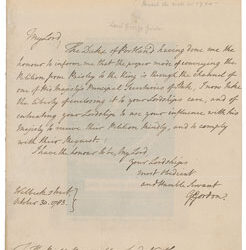 My Lord
The Duke of Portland having done me the
honour to inform me that the proper mode of conveying the
Petition from Paisley to the King is through the channel of
one of his Majesty's Principal Secretaries of State, I now take
the liberty of enclosing it to your Lordships care, and of
entreating your Lordship to use your influence with his
Majesty to receive this Petition kindly, and to comply
with their Request.
I have the honour to be, My Lord
Your Lordships
most obedient
and Humble Servant
G Gordon
Welbeck Street
October 30. 1783.